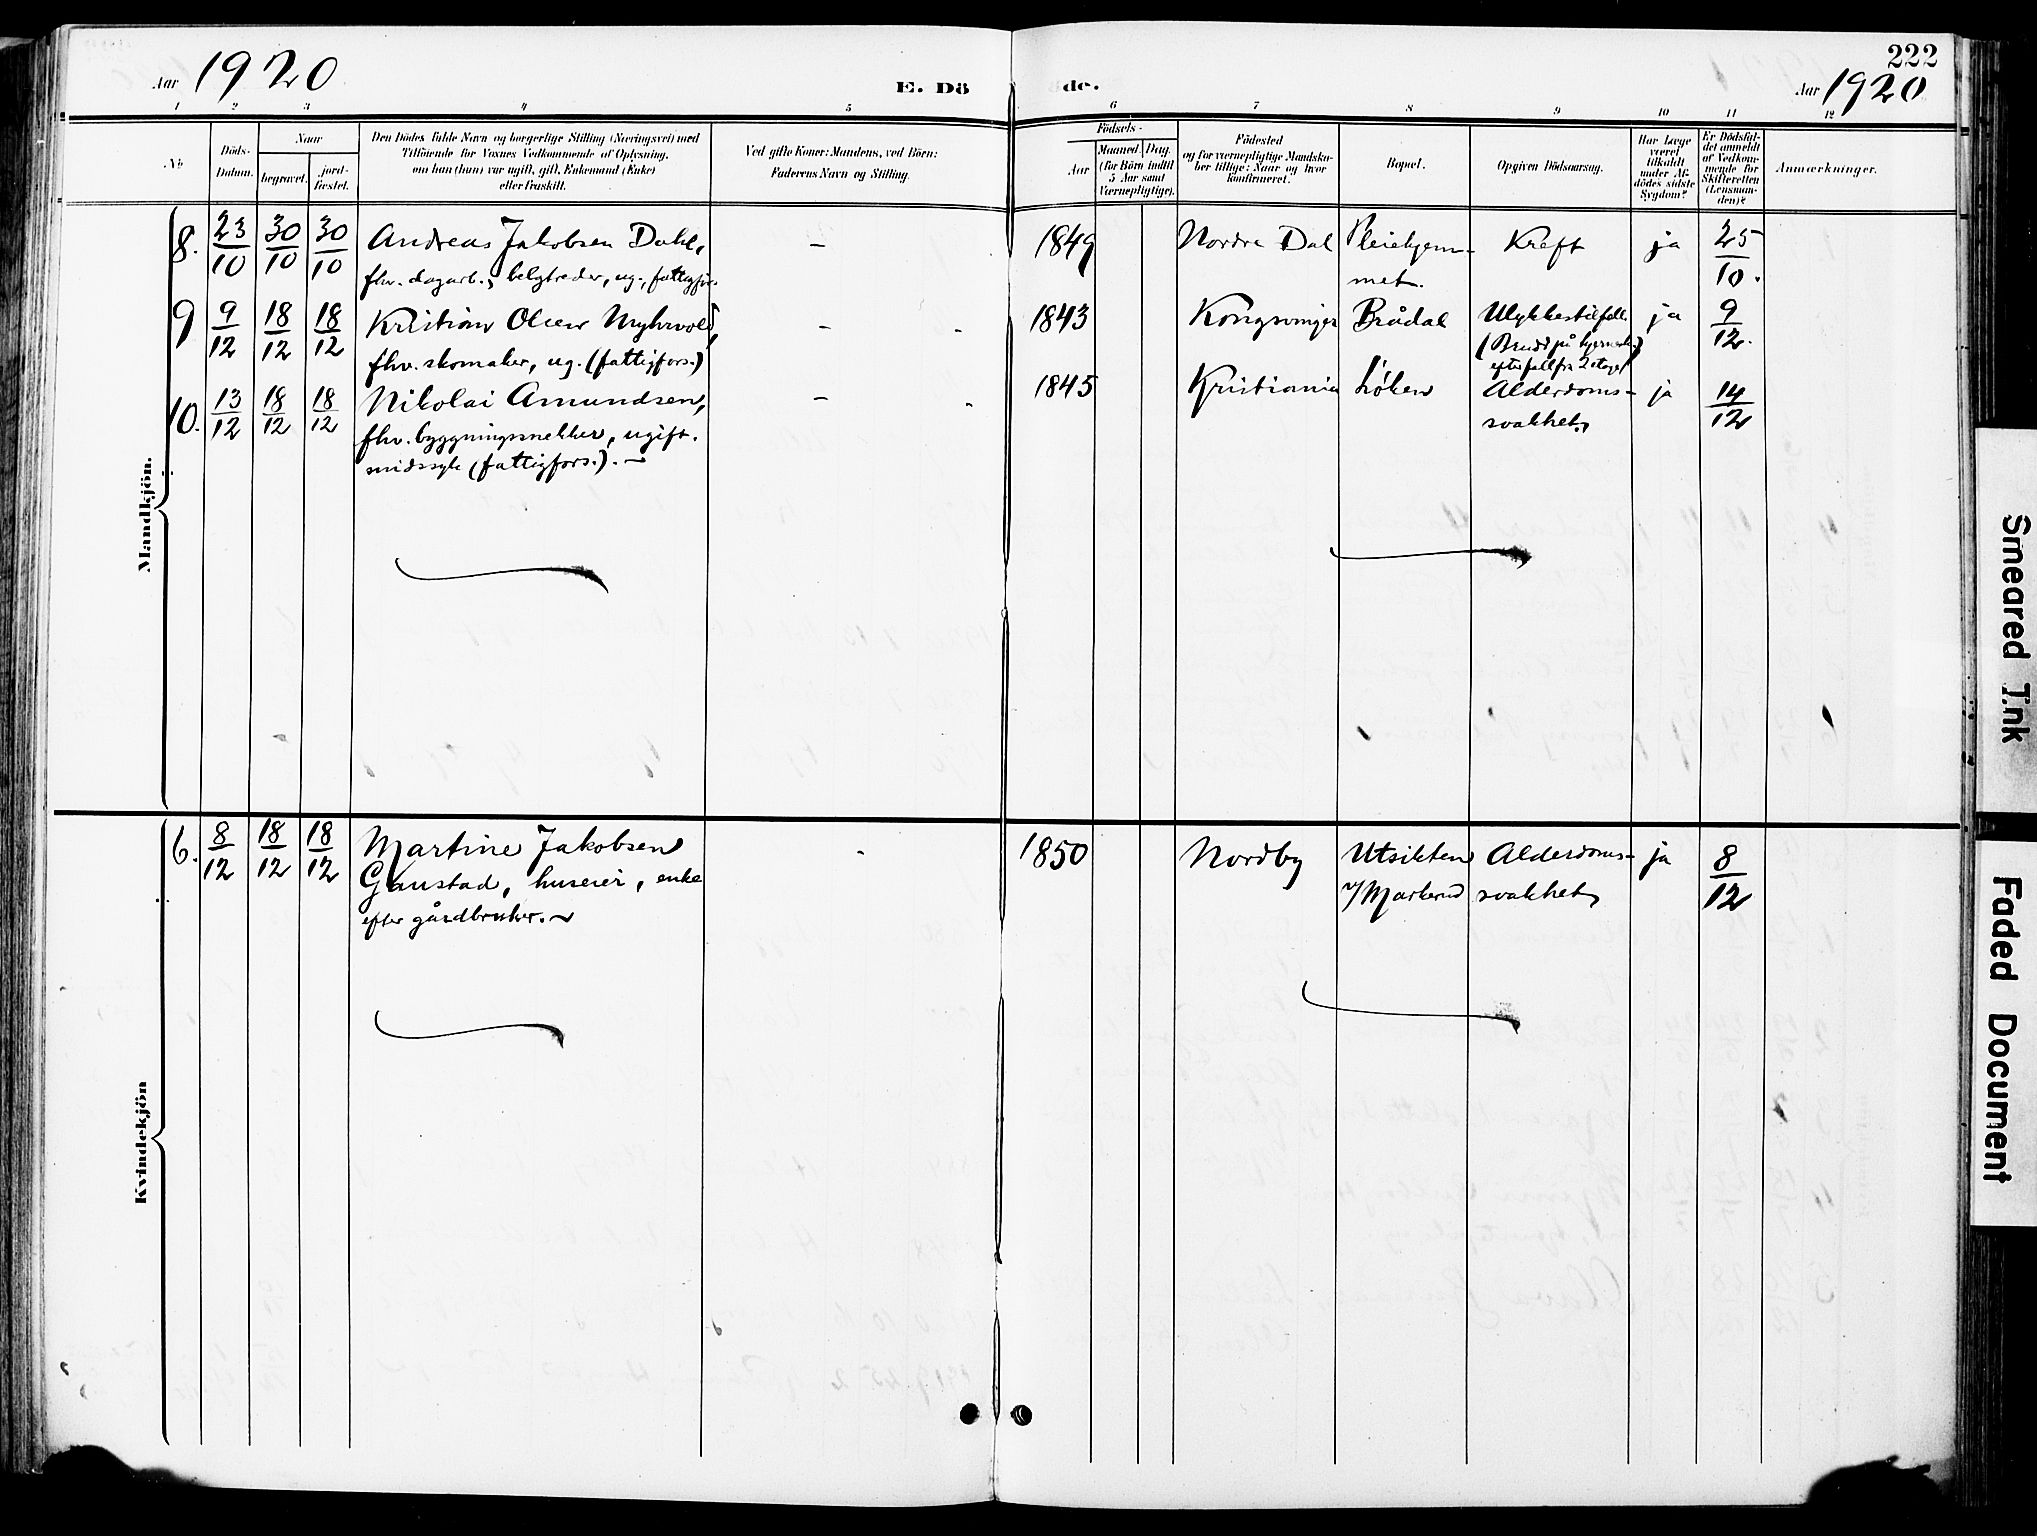 222
Aar 1920
E. Döde.
Aar 1920
1 2 3 4 5 6 7 8 9 10 11 12
No
Döds-
Datum.
Naar
begravet.
jord-
fæstet.
Den Dödes fulde Navn og borgerlige Stilling (Næringsvei) med
Tilföiende for Voxnes Vedkommende af Oplysning,
om han (hun) var ugift, gift, Enkemand (Enke)
eller fraskilt.
Ved gifte Koner: Mandens, ved Börn:
Faderens Navn og Stilling.
Födsels-
Aar
Maaned. Dag.
(for Börn indtil
5 Aar samt
Værnepligtige).
Födested
og for værnepligtige Mandska-
ber tillige: Naar og hvor
konfirmeret.
Bopæl.
Opgiven Dödsaarsag.
Har Læge
været
tilkaldt
under Af-
dödes sidste
Sygdom?
Er Dödsfal-
det anmeldt
af Vedkom-
mende for
Skifteretten
(Lensman-
den)?
Anmærkninger.
Mandkjön.
8. 23/10 30/10 30/10 Andreas Jakobsen Dahl, – 1849 Nordre Dal Pleiehjem- Kreft ja 25/10.
fhv. dagarb., belgtreder, ug., fattigfors.
met.
9 9/12 18/12 18/12 Kristian Olsen Myhrvold, – 1843 Kongsvinger Brådal Ulykkestilfelle ja 9/12.
fhv. skomaker, ug. (fattigfors.)
(Brudd på
efter fall fra 2 etage)
10. 13/12 18/12 18/12 Nikolai Amundsen, – 1845 Kristiania Löken Alderdoms- ja 14/12
fhv. byggningssnekker, ugift.
svakhet.
(fattigfors.). –
Kvindekjön
6. 8/12 18/12 18/12 Martine Jakobsen - 1850 Nordby Utsikten Alderdoms- ja 8/12
Gaustad, huseier, enke
v/ Markerud svakhet.
efter gårdbruker. –
Smeared Ink
Faded Document